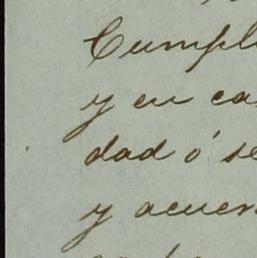 Cumpli
y en ca
dad ó se
y acuer